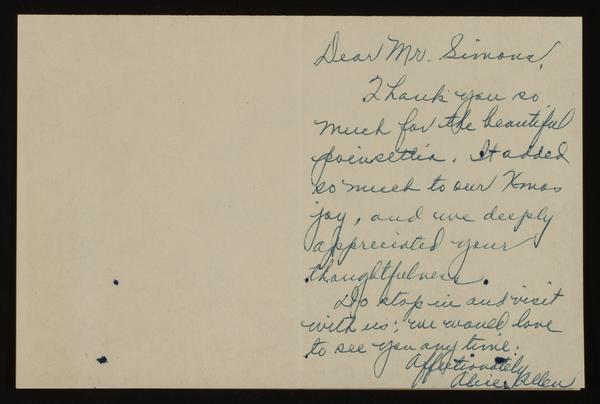 Dear Mr. Simons,
Thank you so
much for the beautiful
poinsettia. It added
so much to our Xmas
joy, and we deeply
appreciated your
thoughtfulness.
Do stop in and visit
with us; we would love
to see you any time.
Affectionately
Alice Allen